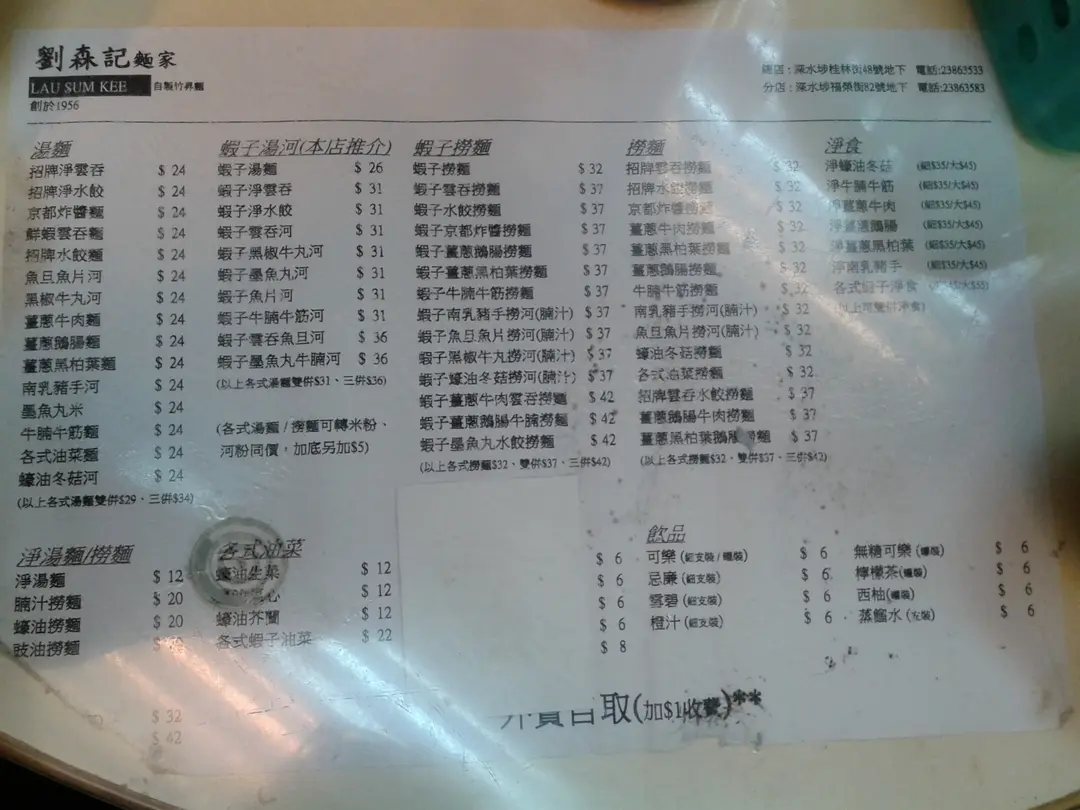 劉森記麵家
LAU SUM KEE 自製竹昇麵
創於1956
總店：深水埗桂林街48號地下 電話:23863533
分店：深水埗福榮街82號地下 電話:23863583
湯麵
招牌淨雲吞 $ 24
招牌淨水餃 $ 24
京都炸醬麵 $ 24
鮮蝦雲吞麵 $ 24
招牌水餃麵 $ 24
魚旦魚片河 $ 24
黑椒牛丸河 $ 24
薑蔥牛肉麵 $ 24
薑蔥鵝腸麵 $ 24
薑蔥黑柏葉麵 $ 24
南乳豬手河 $ 24
墨魚丸米 $ 24
牛腩牛筋麵 $ 24
各式油菜麵 $ 24
蠔油冬菇河 $ 24
(以上各式湯麵雙併$29、三併$34)
蝦子湯河(本店推介)
蝦子湯麵 $ 26
蝦子淨雲吞 $ 31
蝦子淨水餃 $ 31
蝦子雲吞河 $ 31
蝦子黑椒牛丸河 $ 31
蝦子墨魚丸河 $ 31
蝦子魚片河 $ 31
蝦子牛腩牛筋河 $ 31
蝦子雲吞魚旦河 $ 36
蝦子墨魚丸牛腩河 $ 36
(以上各式湯麵雙併$31、三併$36)
(各式湯麵 / 撈麵可轉米粉、
河粉同價，加底另加$5)
蝦子撈麵
蝦子撈麵 $ 32
蝦子雲吞撈麵 $ 37
蝦子水餃撈麵 $ 37
蝦子京都炸醬撈麵 $ 37
蝦子薑蔥鵝腸撈麵 $ 37
蝦子薑蔥黑柏葉撈麵 $ 37
蝦子牛腩牛筋撈麵 $ 37
蝦子南乳豬手撈河(腩汁) $ 37
蝦子魚旦魚片撈河(腩汁) $ 37
蝦子黑椒牛丸撈河(腩汁) $ 37
蝦子蠔油冬菇撈河(腩汁) $ 37
蝦子薑蔥牛肉雲吞撈麵 $ 42
蝦子薑蔥鵝腸牛腩撈麵 $ 42
蝦子墨魚丸水餃撈麵 $ 42
(以上各式撈麵$32、雙併$37、三併$42)
撈麵
招牌雲吞撈麵 $ 32
招牌水餃撈麵 $ 32
京都炸醬撈麵 $ 32
薑蔥牛肉撈麵 $ 32
薑蔥黑柏葉撈麵 $ 32
薑蔥鵝腸撈麵 $ 32
牛腩牛筋撈麵 $ 32
南乳豬手撈河(腩汁) $ 32
魚旦魚片撈河(腩汁) $ 32
蠔油冬菇撈麵 $ 32
各式油菜撈麵 $ 32
招牌雲吞水餃撈麵 $ 37
薑蔥鵝腸牛肉撈麵 $ 37
薑蔥黑柏葉鵝腸撈麵 $ 37
(以上各式撈麵$32、雙併$37、三併$42)
淨食
淨蠔油冬菇 (細$35/大$45)
淨牛腩牛筋 (細$35/大$45)
淨薑蔥牛肉 (細$35/大$45)
淨薑蔥鵝腸 (細$35/大$45)
淨薑蔥黑柏葉 (細$35/大$45)
淨南乳豬手 (細$35/大$45)
各式蝦子淨食
(以上可雙併淨食)
淨湯麵/撈麵
淨湯麵 $ 12
腩汁撈麵 $ 20
蠔油撈麵 $ 20
豉油撈麵 $
$ 32
$ 42
各式油菜
蠔油生菜 $ 12
心 $ 12
蠔油芥蘭 $ 12
各式蝦子油菜 $ 22
$ 6
$ 6
$ 6
$ 6
$ 8
飲品
可樂 (細支裝 / 罐裝) $ 6
忌廉 (細支裝) $ 6
雪碧 (細支裝) $ 6
橙汁 (細支裝) $ 6
無糖可樂 (罐裝) $ 6
檸檬茶(罐裝) $ 6
西柚(罐裝) $ 6
蒸餾水 (支裝) $ 6
外賣自取(加$1收費)**